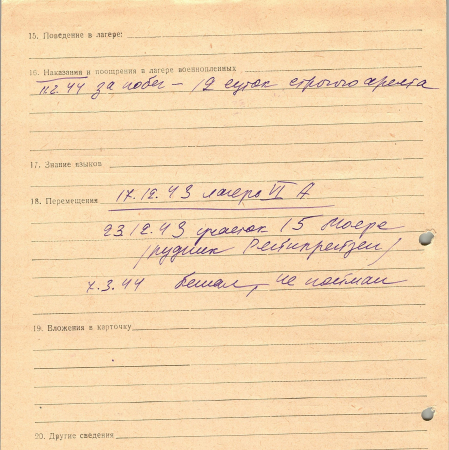 15. Поведение в лагере:
16. Наказания и поощрения в лагере военнопленных
11.2.44 за побег — 12 суток строгого ареста
17. Знание языков
18. Перемещения 17.12.43 лагерь VI A
23.12.43 участок 15 Моерс
/рудник
7.3.44 бежал, не пойман
19. Вложения в карточку
20. Другие сведения